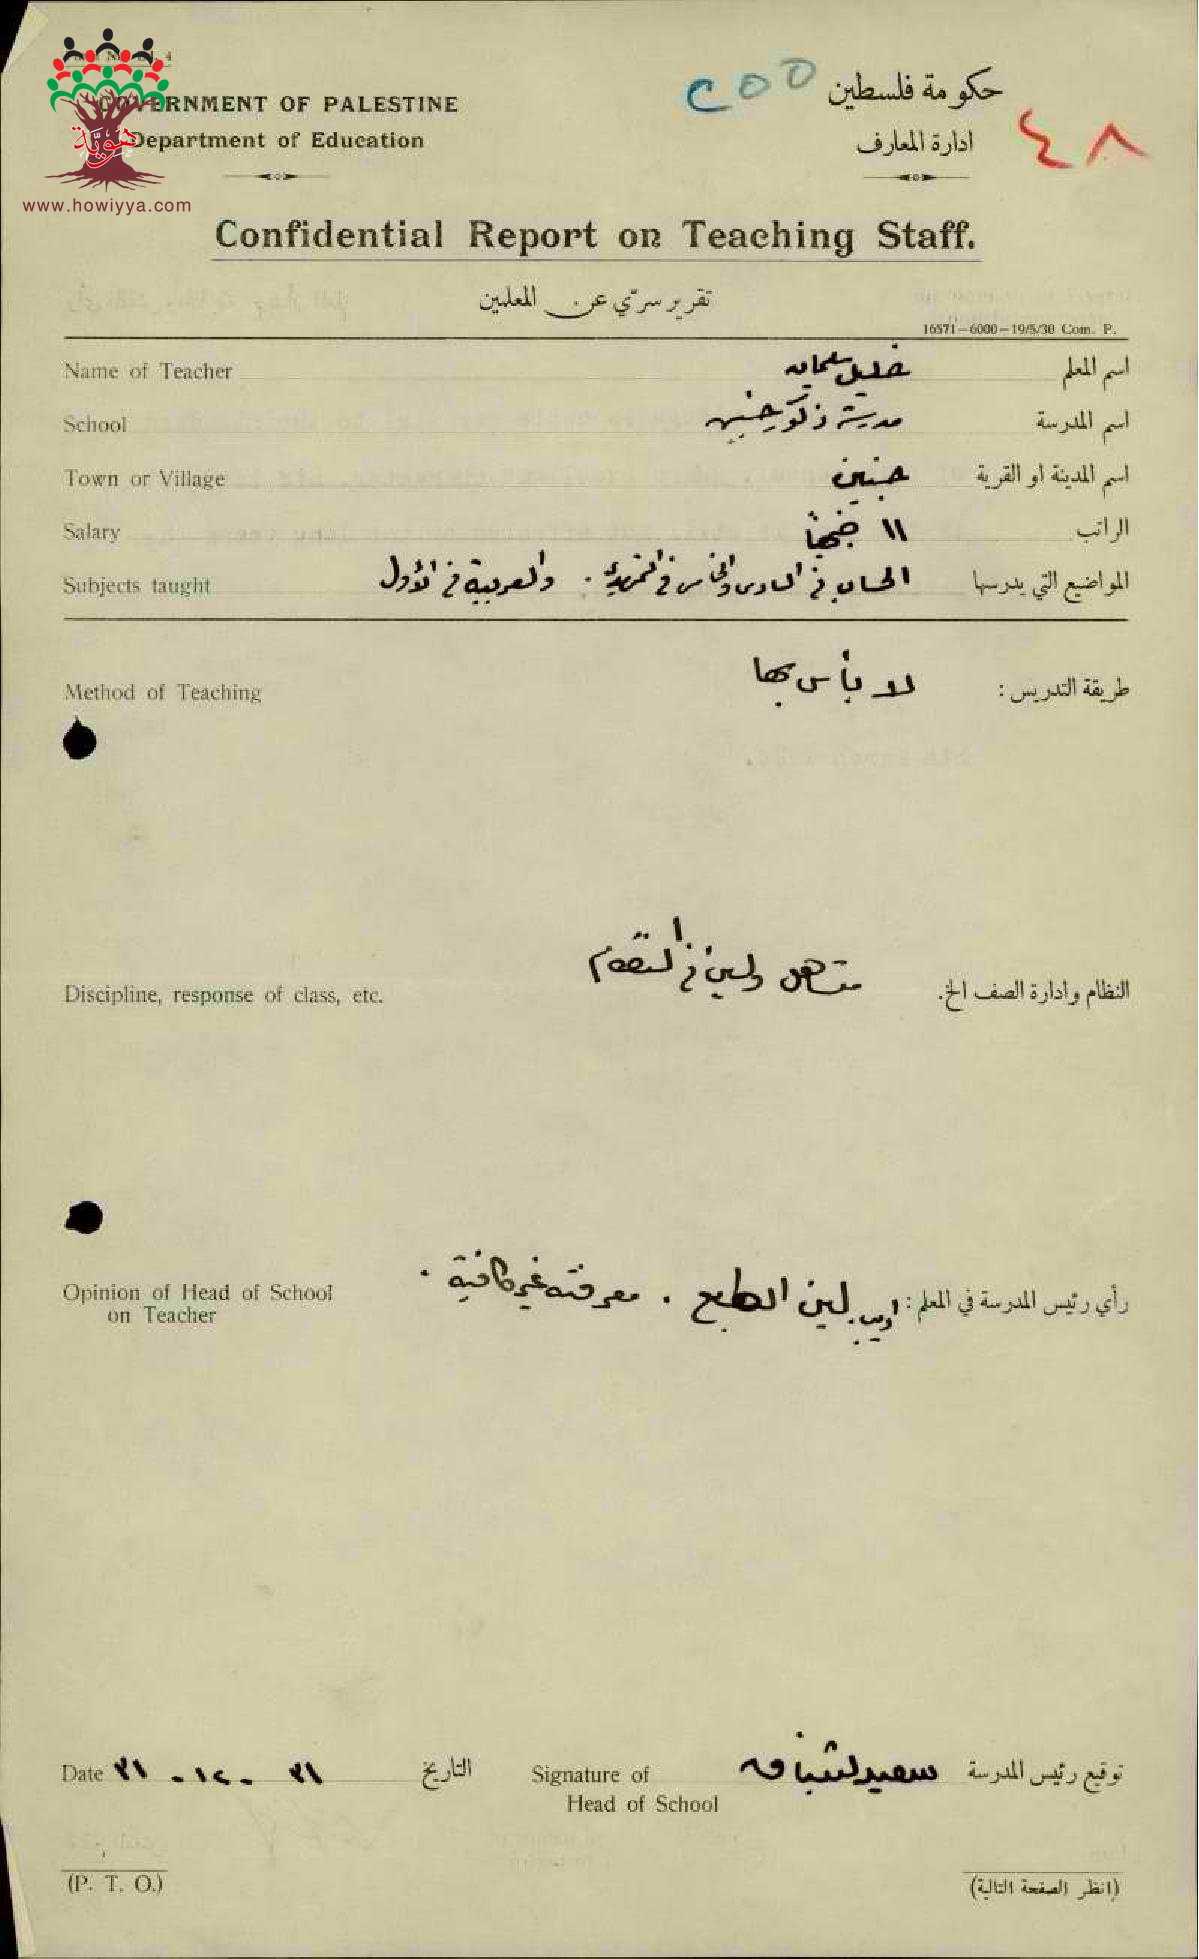 GOVERNMENT OF PALESTINE
Department of Education
حكومة فلسطين
ادارة المعارف
٢٥٥
٤٨
هوية
www.howiyya.com
Confidential Report on Teaching Staff.
تقرير سرّي عن المعلمين
16571—6000—19/5/30 Com. P.
Name of Teacher خليل سليمان اسم المعلم
School مدرسة ذكور جنين اسم المدرسة
Town or Village جنين اسم المدينة او القرية
Salary ١١ جنيهاً الراتب
Subjects taught الحساب في السادس والخامس في التمهيدي . والعربية في الأول المواضيع التي يدرسها
Method of Teaching لا بأس بها طريقة التدريس :
Discipline, response of class, etc. متساهل ولين في النظام النظام وادارة الصف الخ.
Opinion of Head of School
on Teacher
رأي رئيس المدرسة في المعلم : اديب لين الطبع . معرفته غير كافية .
Date ٣١ - ١٢ - ٣١ التاريخ
Signature of
Head of School
سعيد توقيع رئيس المدرسة
(P. T. O.)
(انظر الصفحة التالية)